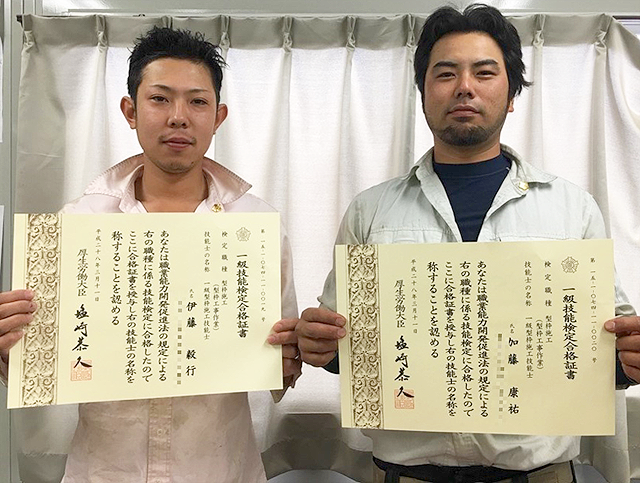 一級技能検定合格証書
検定職種 型枠施工
(型枠工事作業)
技能士の名称 一級型枠施工技能士
氏名 伊藤 毅行
あなたは職業能力開発促進法の規定による
右の職種に係る技能検定に合格したので
ここに合格証書を授与し右の技能士の名称を
称することを認める
平成二十八年三月十一日
厚生労働大臣 塩崎恭久
一級技能検定合格証書
検定職種 型枠施工
(型枠工事作業)
技能士の名称 一級型枠施工技能士
氏名 加藤 康祐
あなたは職業能力開発促進法の規定による
右の職種に係る技能検定に合格したので
ここに合格証書を授与し右の技能士の名称を
称することを認める
平成二十八年三月十一日
厚生労働大臣 塩崎恭久